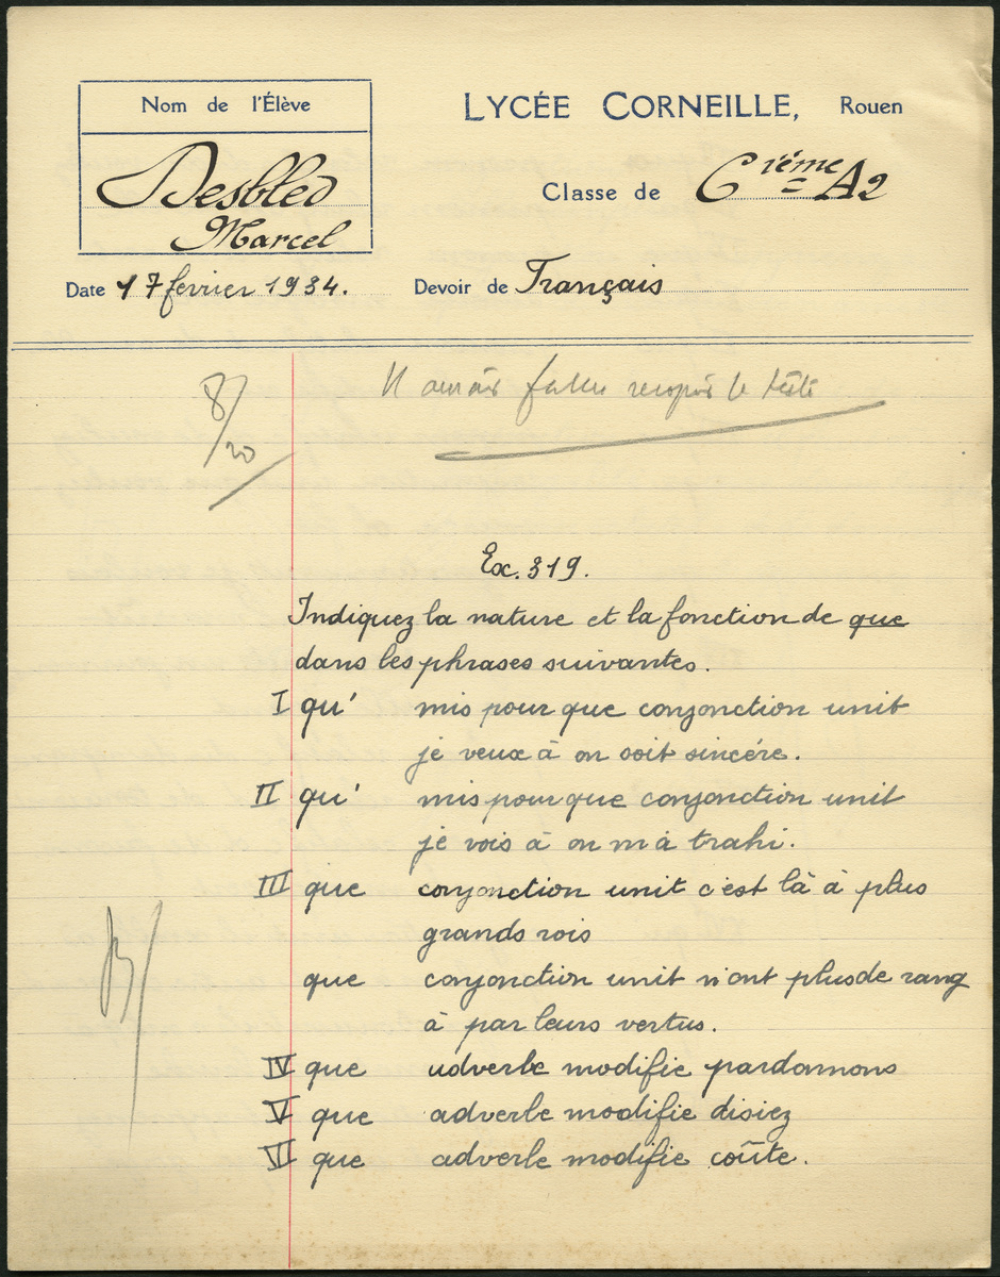 Nom de l'Élève
LYCÉE CORNEILLE, Rouen
Desbled
Marcel
Classe de 6ième A2
Date 17 fevrier 1934.
Devoir de Français
8/20
Il aurait fallu recopier le texte
Ex. 319.
Indiquez la nature et la fonction de que
dans les phrases suivantes.
I qu' mis pour que conjonction unit
je veux à on soit sincére.
II qu' mis pour que conjonction unit
je vois à on m'a trahi.
III que conjonction unit c'est là à plus
grands rois
que conjonction unit n'ont plus de rang
à par leurs vertus.
IV que adverbe modifie pardonnons
V que adverbe modifie disiez
VI que adverbe modifie coûte.